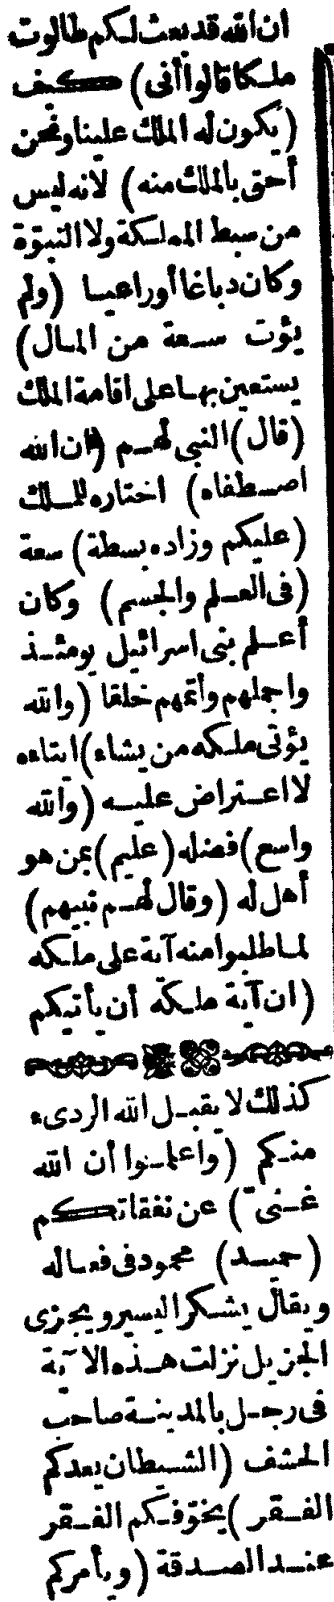 ان الله قد بعث لكم طالوت
ملكا قالوا أنى) كيف
(يكون له الملك علينا ونحن
أحق بالملك منه) لانه ليس
من سبط المملكة ولا النبوّة
وكان دباغا أو راعيا (ولم
يؤت سعة من المال)
يستعين بها على اقامة الملك
(قال) النبى لهم (ان الله
اصطفاه) اختاره للملك
(عليكم وزاده بسطة) سعة
(فى العلم والجسم) وكان
أعلم بنى اسرائيل يومئذ
واجملهم وأتمهم خلقا (والله
يؤتى ملكه من يشاء) ايتاءه
لا اعتراض عليه (والله
واسع) فضله (عليم) بمن هو
أهل له (وقال لهم نبيهم)
لما طلبوا منه آية على ملكه
(ان آية ملكه أن يأتيكم
كذلك لا يقبل الله الردىء
منكم (واعلموا أن الله
غنى) عن نفقاتكم
(حميد) محمود فى فعاله
ويقال يشكر اليسير ويجزى
الجزيل نزلت هذه الآية
فى رجل بالمدينة صاحب
الحشف (الشيطان يعدكم
الفقر) يخوّفكم الفقر
عند الصدقة (ويأمركم